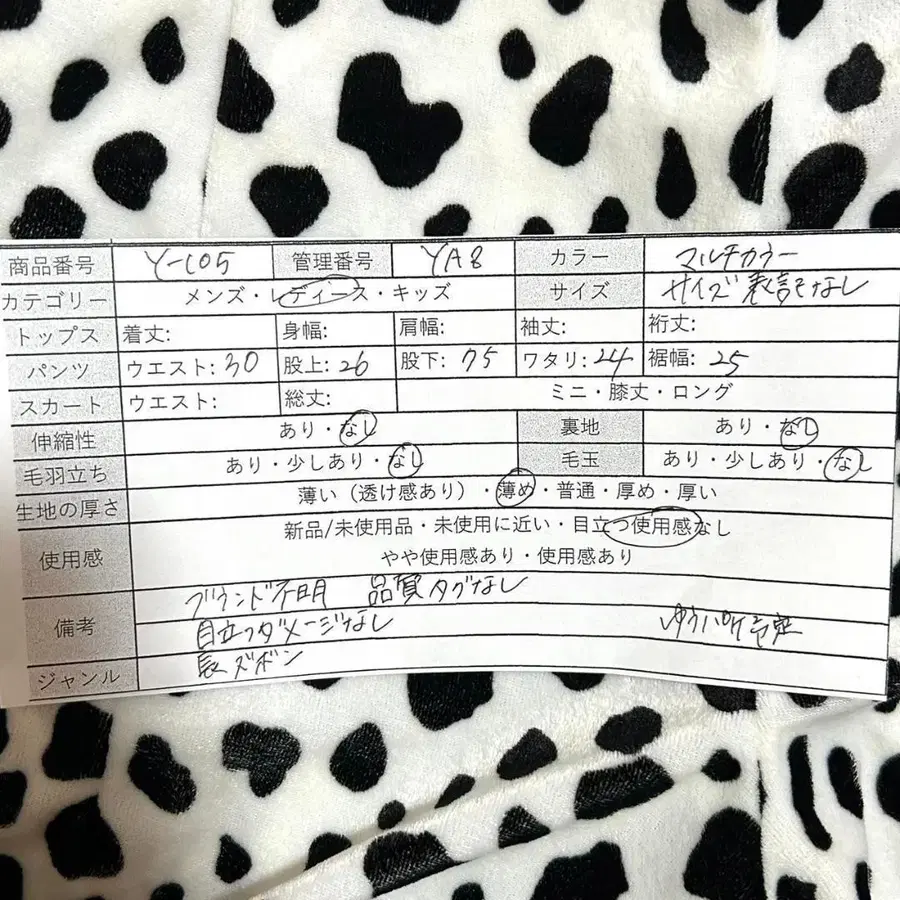 商品番号 Y-105 管理番号 YA8 カラー マルチカラー
カテゴリー メンズ・レディース・キッズ サイズ サイズ表記なし
トップス 着丈: 身幅: 肩幅: 袖丈: 裄丈:
パンツ ウエスト: 30 股上: 26 股下: 75 ワタリ: 24 裾幅: 25
スカート ウエスト: 総丈: ミニ・膝丈・ロング
伸縮性 あり・なし 裏地 あり・なし
毛羽立ち あり・少しあり・なし 毛玉 あり・少しあり・なし
生地の厚さ 薄い（透け感あり）・薄め・普通・厚め・厚い
使用感 新品/未使用品・未使用に近い・目立つ使用感なし
やや使用感あり・使用感あり
備考 ブランド不明 品質タグなし
目立つダメージなし ゆうパケ予定
ジャンル 長ズボン